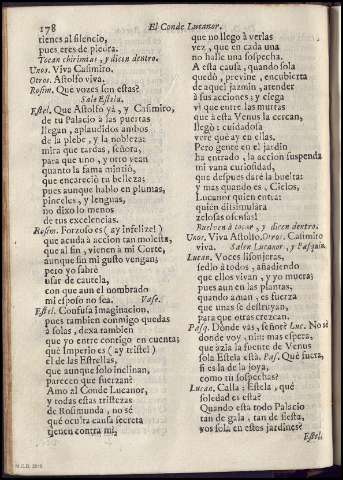 178
El Conde Lucanor.
tienes al silencio,
pues eres de piedra.
Tocan chirimias, y dicen dentro.
Unos. Viva Casimiro.
Otros. Astolfo viva.
Rosim. Que vozes son estas?
Sale Estela.
Estel. Que Astolfo yà, y Casimiro,
de tu Palacio à las puertas
llegan, aplaudidos ambos
de la plebe, y la nobleza:
mira que tardas, señora,
para que uno, y otro vean
quanto la fama mintiò,
que encareciò tu belleza;
pues aunque hablo en plumas,
pinceles, y lenguas,
no dixo lo menos
de tus excelencias.
Rosim. Forzoso es (ay infelize!)
que acuda à accion tan molesta,
que al fin, vienen à mi Corte,
aunque sin mi gusto vengan;
pero yo sabrè
usar de cautela,
con que aun el nombrado
mi esposo no sea. Vase.
Estel. Confusa imaginacion,
pues tambien conmigo quedas
à solas, dexa tambien
que yo entre conmigo en cuenta;
què Imperio es (ay triste!)
el de las Estrellas,
que aunque solo inclinan,
parecen que fuerzan?
Amo al Conde Lucanor,
y todas estas tristezas
de Rosimunda, no sè
què oculta causa secreta
tienen contra mi,
que no llego à verlas
vez, que en cada una
no halle una sospecha.
A esta causa, quando sola
quedò, previne, encubierta
de aquel jazmin, atender
à sus acciones; y ciega
vi que entre las murtas
que à esta Venus la cercan,
llegò: cuidadosa
verè què ay en ellas.
Pero gente en el jardin
ha entrado, la accion suspenda
mi vana curiosidad,
que despues darè la buelta:
y mas quando es, Cielos,
Lucanor quien entra:
quièn dissimulàra
zelosas ofensas!
Buelven à tocar, y dicen dentro.
Unos. Viva Astolfo. Otros. Casimiro
viva. Salen Lucanor, y Pasquin.
Lucan. Voces lisonjeras,
sedlo à todos, añadiendo
que ellos vivan, y yo muera;
pues aun en las plantas,
quando aman, es fuerza
que unas se destruyan,
para que otras crezcan.
Pasq. Dònde vàs, señor? Luc. No sè
donde voy, mira; mas espera,
que àzia la fuente de Venus
sola Estela està. Pas. Què fuera,
si es la de la joya,
como tù sospechas?
Lucan. Calla: Estela, què
soledad es esta?
Quando està todo Palacio
tan de gala, tan de fiesta,
vos sola en estos jardines?
Estel.